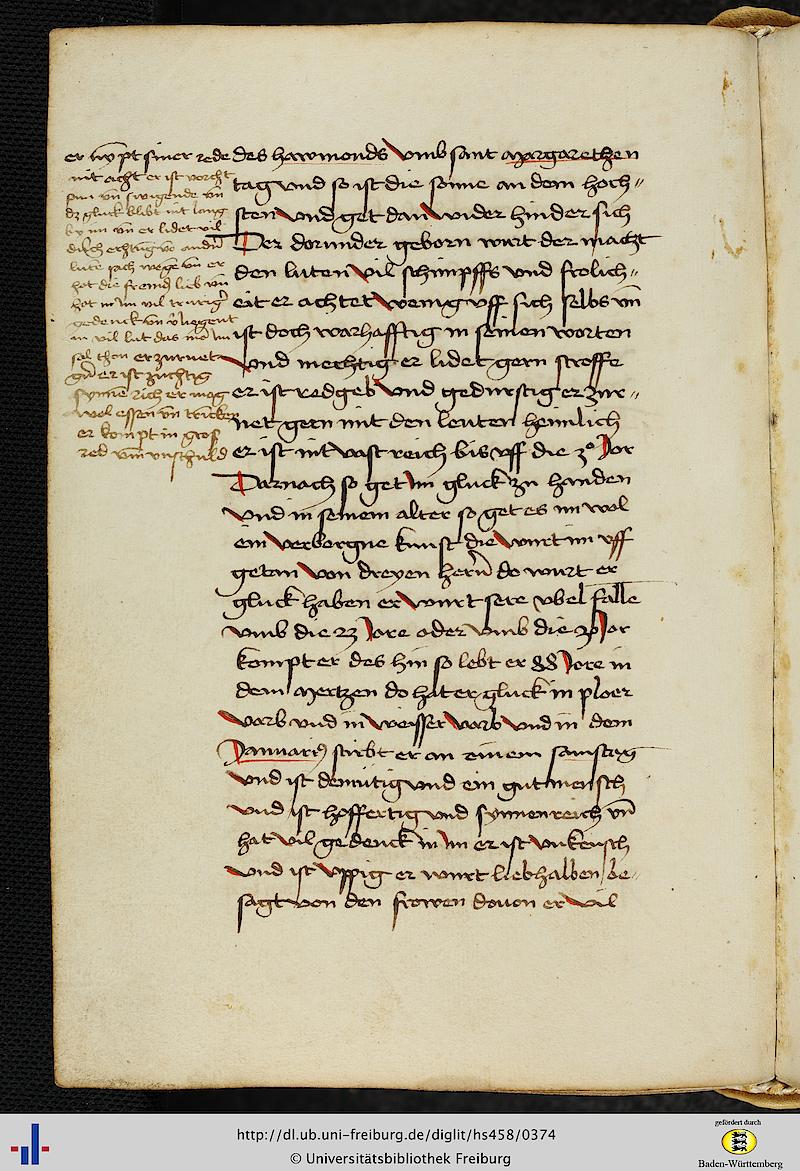 des hawmonds vmb sant Margarethen
tag vnd so ist die sonne an dem hoch⸗
sten vnd get dan wider hinder sich
Der dorunder geborn wurt der macht
den luten vil schimpffs vnd frolich⸗
eit er achtet wenig vff sich selbs vn̄
ist doch warhafftig in seinen worten
vnd mechtig er lidet gern stroffe
er ist redgeb vnd gedurstig er zur⸗
net gern mit den leuten heimlich
er ist nit vast reich bis vff die 30 Jor
Darnach so get im gluck zu handen
vnd in seinem alter so get es im wol
ein verborgne kunst die wurt im vff
getan von dreyen hern̄ do wurt er
gluck haben er wurt sere vbel falle
vmb die 23 Jore oder vmb die Jor
kompt er des hin so lebt er 88 Jore in
dem Mertzen do hat er gluck in ploer
varb vnd in weisser varb vnd in dem
Januarius stirbt er an einem samstag
vnd ist demutig vnd ein gut mensch
vnd ist hoffertig vnd synnenreich vn̄
hat vil gedenck in im er ist vnkeusch
vnd ist vppig er wurt liebhalben be⸗
sagt von den frowen douon er vil
er siner rede
nit acht er ist vorcht
sam vn̄ swigende vn̄
dz gluck blibt nit lang
by im vn̄ er lidet vil
lute sach wege vn̄ er
hat die fremd lieb vn̄
hat in im vil trurig
gedenck vn̄
in vil lut das im
sol thon er zurnet
er ist zuchtig
synne rich er mag
wol essen vn̄ trincken
er kompt in gros
red vmb vnschuld
http://dl.ub.uni-freiburg.de/diglit/hs458/0374
© Universitätsbibliothek Freiburg
gefördert durch
Baden-Württemberg